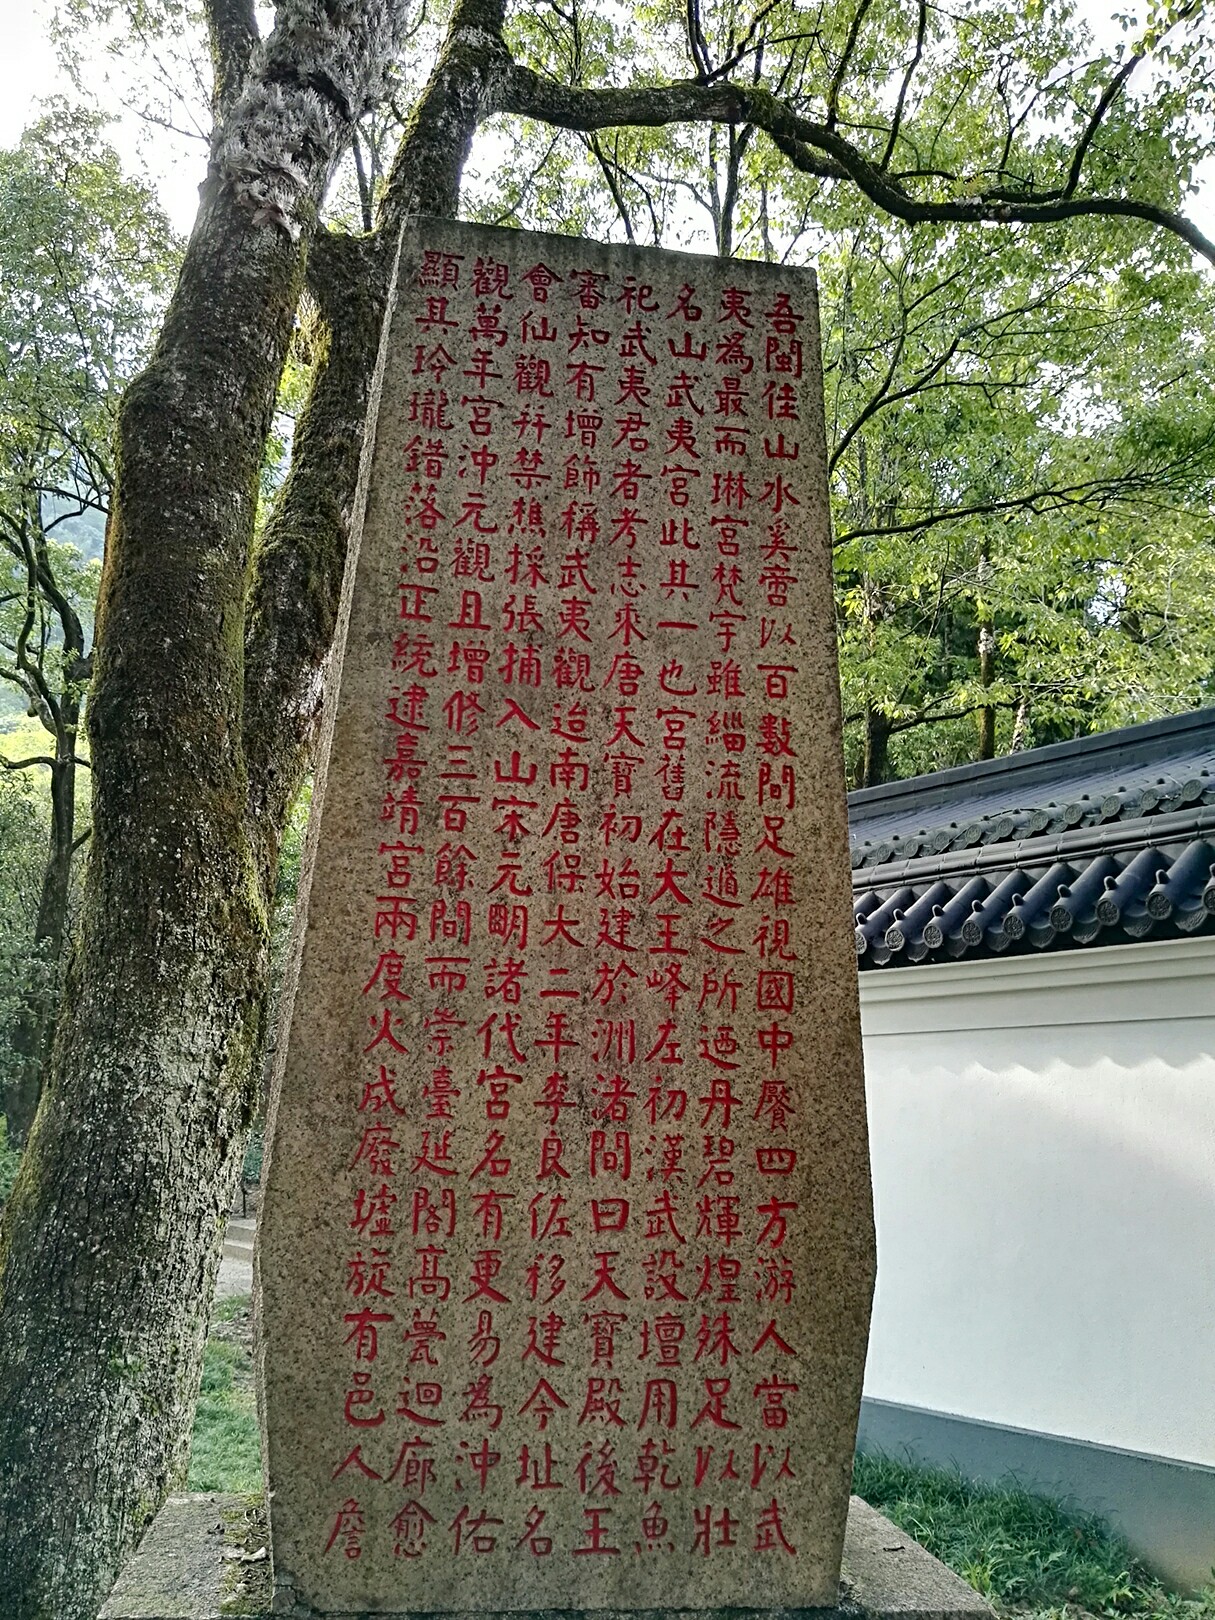 吾閩佳山水奚啻以百數間足雄視國中饜四方游人當以武
夷為最而琳宮梵宇雖緇流隱遁之所迺丹碧輝煌殊足以壯
名山武夷宮此其一也宮舊在大王峰左初漢武設壇用乾魚
祀武夷君者考志乘唐天寶初始建於洲渚間曰天寶殿後王
審知有增飾稱武夷觀迨南唐保大二年李良佐移建今址名
會仙觀幷禁樵採張捕入山宋元朙諸代宮名有更易為沖佑
觀萬年宮沖元觀且增修三百餘間而崇臺延閣高甍迴廊愈
顯其玲瓏錯落沿正統逮嘉靖宮兩度火成廢墟旋有邑人詹